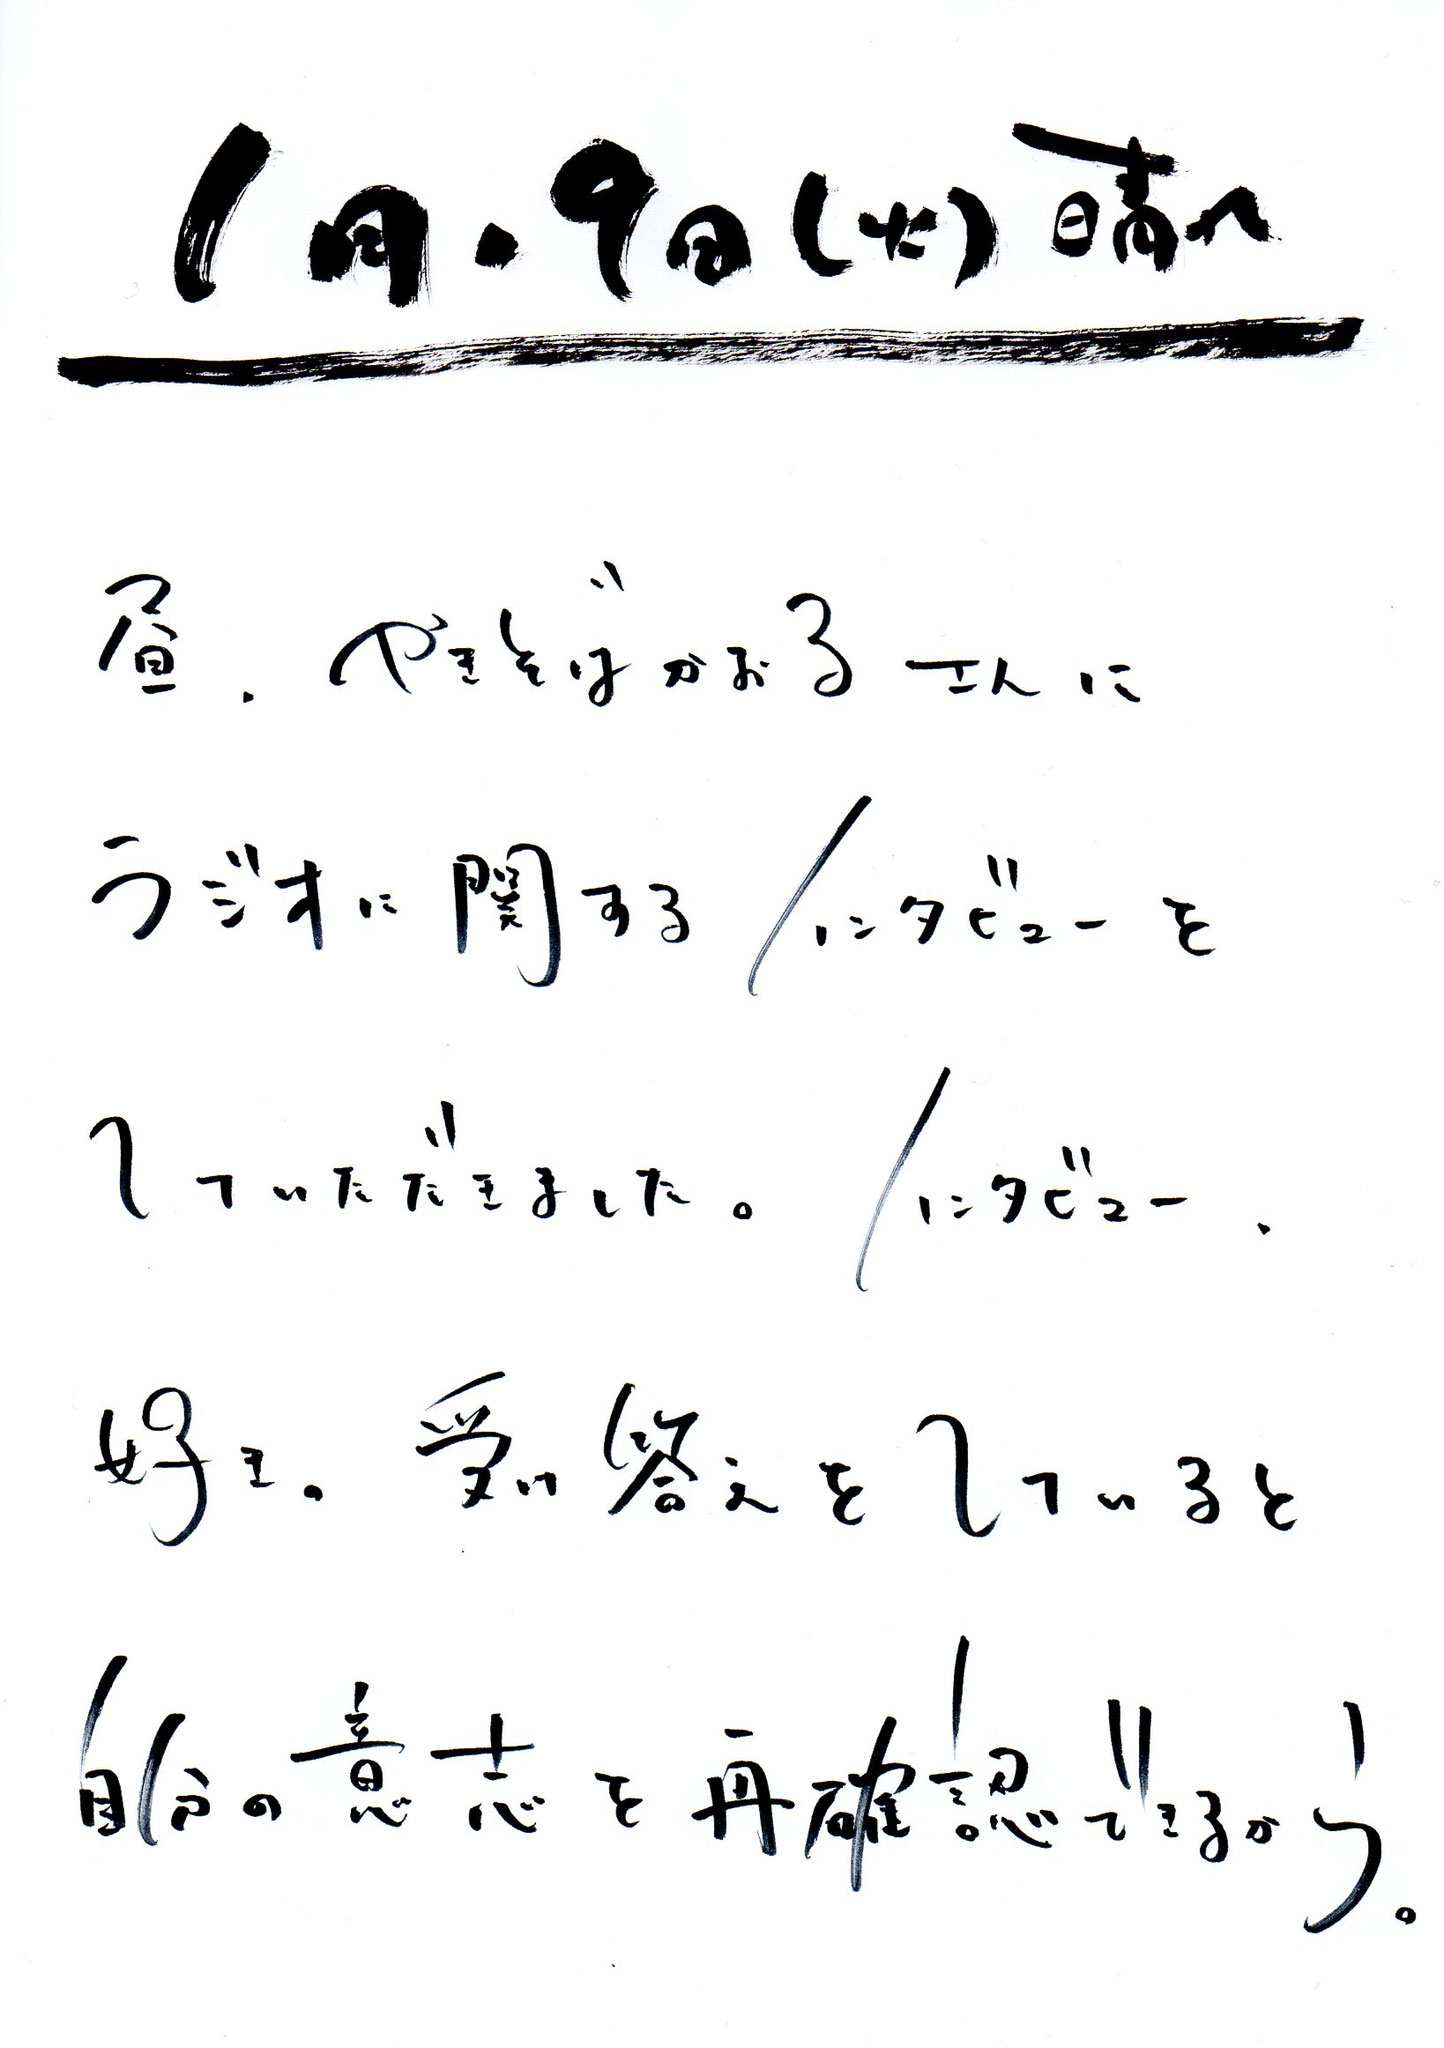 1月.9日(火)晴れ
昼、やきそばかおるさんに
ラジオに関するインタビューを
していただきました。インタビュー、
好き。受け答えをしていると
自分の意志を再確認できるから。